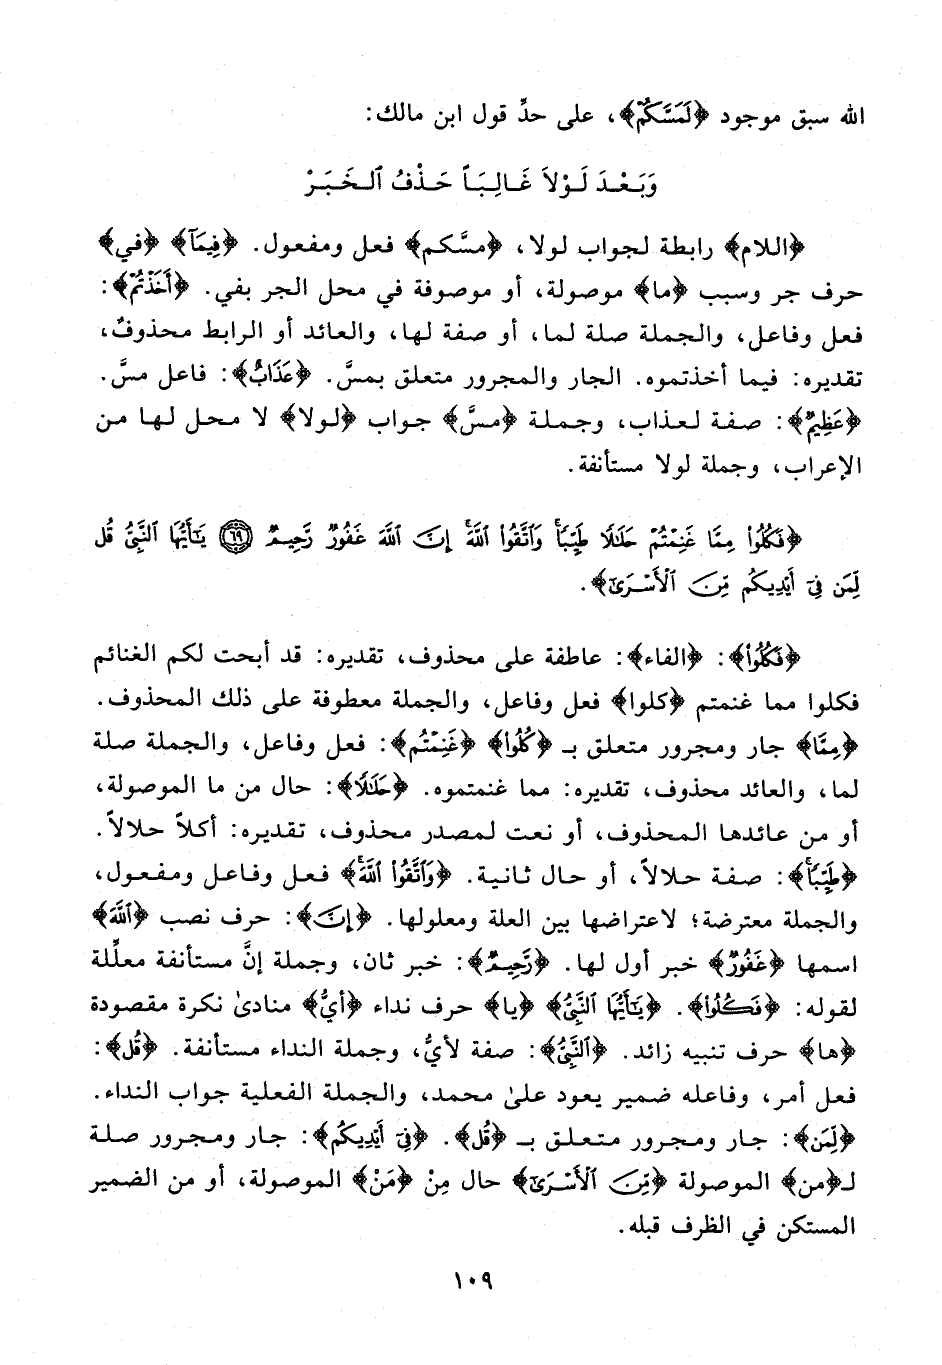 الله سبق موجود ﴿لَمَسَّكُمْ﴾، على حدِّ قول ابن مالك:
وَبَعْدَ لَوْلاَ غَالِبَاً حَذْفُ ٱلخَبَرْ
﴿اللام﴾ رابطة لجواب لولا، ﴿مسَّكم﴾ فعل ومفعول. ﴿فِيمَآ﴾ ﴿في﴾
حرف جر وسبب ﴿ما﴾ موصولة، أو موصوفة في محل الجر بفي. ﴿أَخَذْتُمْ﴾:
فعل وفاعل، والجملة صلة لما، أو صفة لها، والعائد أو الرابط محذوفٌ،
تقديره: فيما أخذتموه. الجار والمجرور متعلق بمسَّ. ﴿عَذَابٌ﴾: فاعل مسَّ.
﴿عَظِيمٌ﴾: صفة لعذاب، وجملة ﴿مسَّ﴾ جواب ﴿لولا﴾ لا محل لها من
الإعراب، وجملة لولا مستأنفة.
﴿فَكُلُوا۟ مِمَّا غَنِمْتُمْ حَلَٰلًا طَيِّبًا ۚ وَٱتَّقُوا۟ ٱللَّهَ ۚ إِنَّ ٱللَّهَ غَفُورٌ رَّحِيمٌ ٦٩ يَٰٓأَيُّهَا ٱلنَّبِىُّ قُل
لِّمَن فِىٓ أَيْدِيكُم مِّنَ ٱلْأَسْرَىٰٓ﴾.
﴿فَكُلُوا۟﴾: ﴿الفاء﴾: عاطفة على محذوف، تقديره: قد أبحت لكم الغنائم
فكلوا مما غنمتم ﴿كلوا﴾ فعل وفاعل، والجملة معطوفة على ذلك المحذوف.
﴿مِمَّا﴾ جار ومجرور متعلق بـ ﴿كُلُوا۟﴾ ﴿غَنِمْتُم﴾: فعل وفاعل، والجملة صلة
لما، والعائد محذوف، تقديره: مما غنمتموه. ﴿حَلَٰلًا﴾: حال من ما الموصولة،
أو من عائدها المحذوف، أو نعت لمصدر محذوف، تقديره: أكلاً حلالاً.
﴿طَيِّبًا ۚ﴾: صفة حلالاً، أو حال ثانية. ﴿وَٱتَّقُوا۟ ٱللَّهَ ۚ﴾ فعل وفاعل ومفعول،
والجملة معترضة؛ لاعتراضها بين العلة ومعلولها. ﴿إِنَّ﴾: حرف نصب ﴿ٱللَّهَ﴾
اسمها ﴿غَفُورٌ﴾ خبر أول لها. ﴿رَّحِيمٌ﴾: خبر ثان، وجملة إنَّ مستأنفة معلِّلة
لقوله: ﴿فَكُلُوا۟﴾. ﴿يَٰٓأَيُّهَا ٱلنَّبِىُّ﴾ ﴿يا﴾ حرف نداء ﴿أيُّ﴾ منادىٰ نكرة مقصودة
﴿ها﴾ حرف تنبيه زائد. ﴿ٱلنَّبِىُّ﴾: صفة لأيُّ، وجملة النداء مستأنفة. ﴿قُل﴾:
فعل أمر، وفاعله ضمير يعود علىٰ محمد، والجملة الفعلية جواب النداء.
﴿لِّمَن﴾: جار ومجرور متعلق بـ ﴿قُل﴾. ﴿فِىٓ أَيْدِيكُم﴾: جار ومجرور صلة
لـ﴿من﴾ الموصولة ﴿مِّنَ ٱلْأَسْرَىٰٓ﴾ حال مِنْ ﴿مَنْ﴾ الموصولة، أو من الضمير
المستكن في الظرف قبله.
١٠٩